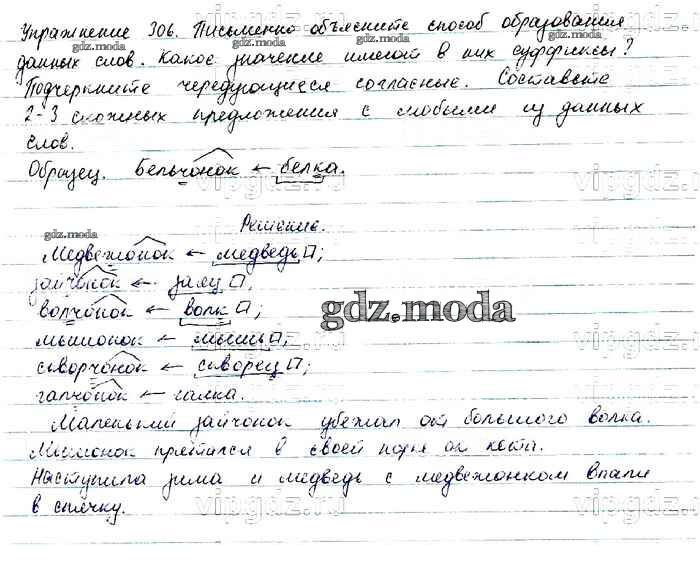 Упражнение 306. Письменно объясните способ образования
gdz.moda gdz.moda
данных слов. Какое значение имеют в них суффиксы?
Подчеркните чередующиеся согласные. Составьте
2-3 сложных предложения с любыми из данных
слов.
vipgdz.ru
Образец. Бельчонок ← белка.
vipgdz.ru
gdz.moda
Решение.
Медвежонок ← медведь;
зайчонок ← заяц;
волчонок ← волк;
gdz.moda
мышонок ← мышь;
скворчонок ← скворец;
галчонок ← галка.
Маленький зайчонок убежал от большого волка.
Мышонок прятался в своей норе от кота.
Наступила зима и медведь с медвежонком впали
в спячку.
vipgdz.ru vipgdz.ru